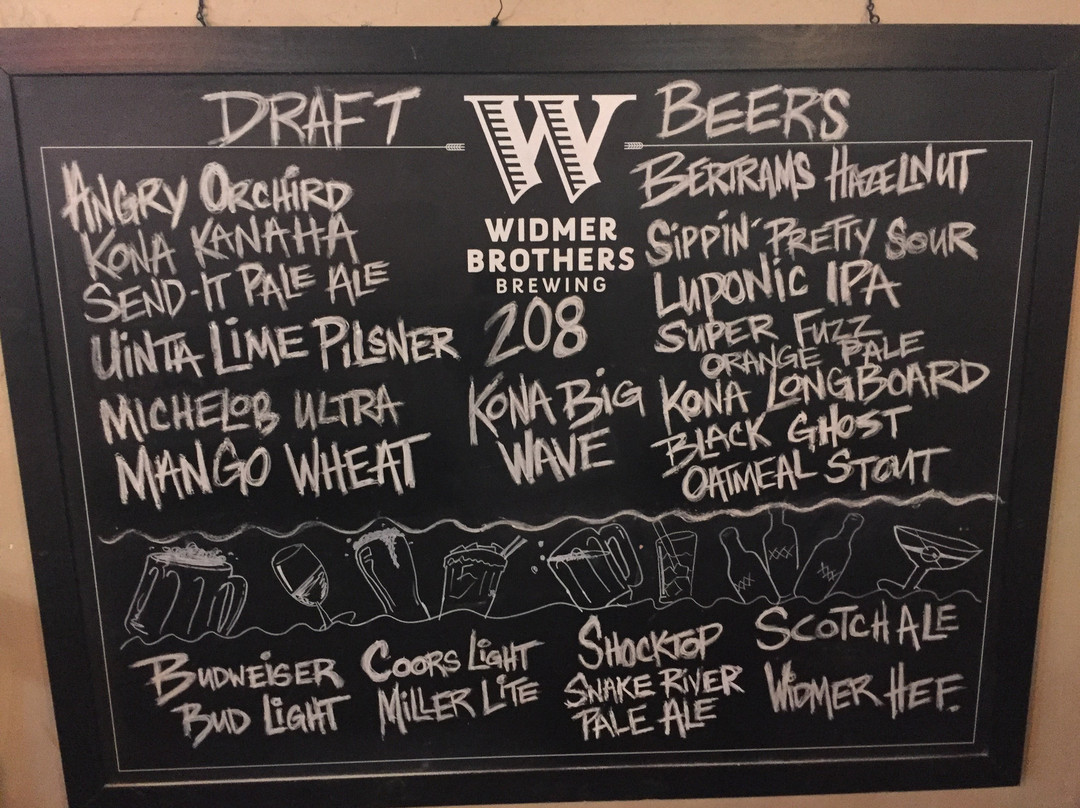 DRAFT
BEERS
W
WIDMER
BROTHERS
BREWING
ANGRY ORCHIRD
KONA KANAHA
SEND-IT PALE ALE
UINTA LIME PILSNER
MICHELOB ULTRA
MANGO WHEAT
208
KONA BIG
WAVE
BERTRAMS HAZELNUT
SIPPIN' PRETTY SOUR
LUPONIC IPA
SUPER FUZZ
ORANGE PALE
KONA LONGBOARD
BLACK GHOST
OATMEAL STOUT
XXX
XXX
XXX
BUDWEISER
BUD LIGHT
COORS LIGHT
MILLER LITE
SHOCKTOP
SNAKE RIVER
PALE ALE
SCOTCH ALE
WIDMER HEF.